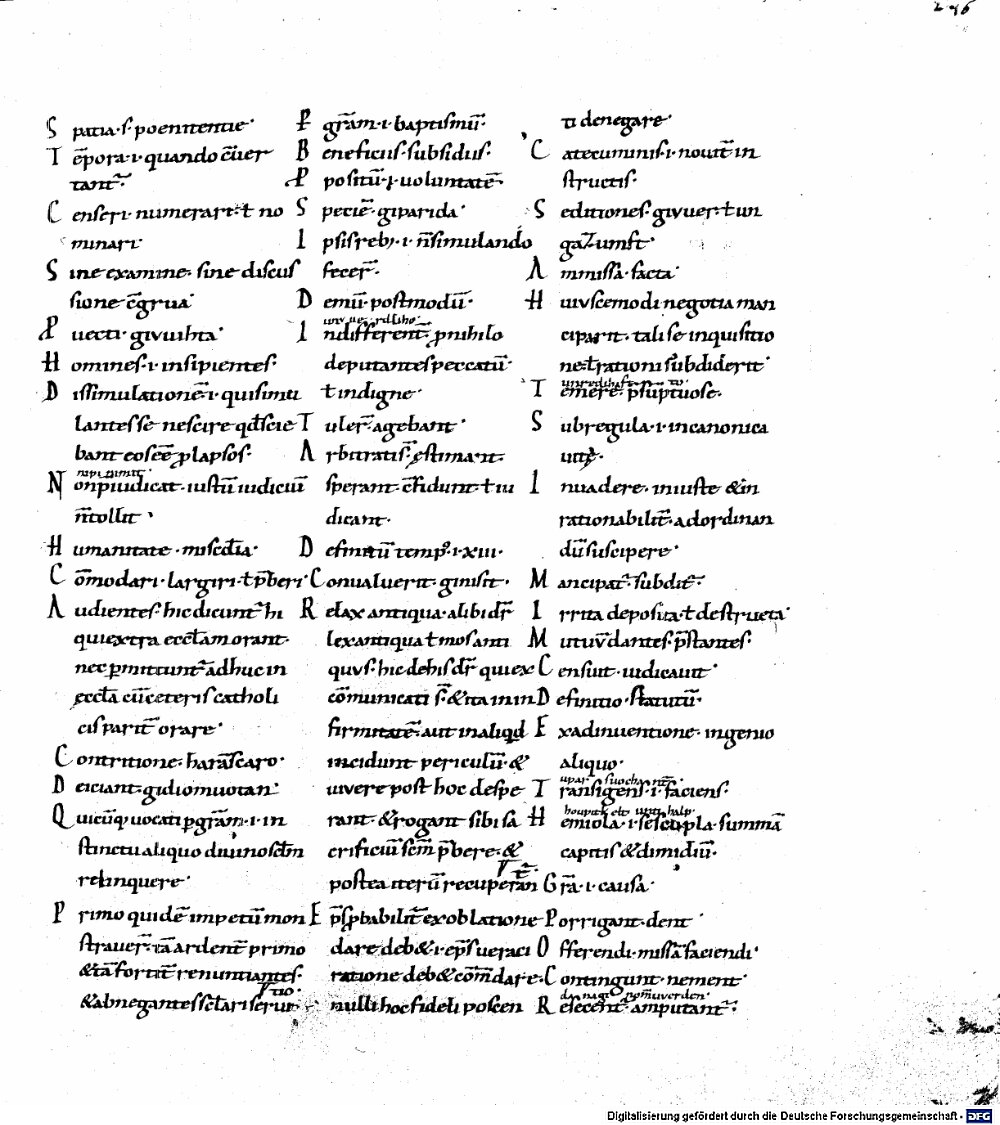 Spatia·ſ· poenitentie·
Te͞pora·i·quando c͞uer
tant᷒·
Censeri·numerari·ł no
minari·
Sine examine· sine discus
sione c͞grua·
Puecti· givuihta·
Homines·i·insipientes·
Dissimulatione͞·i·quisimu
lantes se nescire qđ scie
bant eos ee͞ plapsos·
Non p͞iudicat·iustu͞ iudiciu͞
n͞ tollit·
Humanitate·mis͞cđia·
Co͞modari·largiri·ł p͞beri·
Audientes·hic dicunt͞ hi
qui extra eccłam orant·
nec pmittunt͞ adhuc in
ęccła cu͞ ceteris catholi
cis parit͞ orare·
Contritione·haram͞scaro·
Deiciant·gidiomuotan·
Quicu͞q; uocati p gra͞m·i·in
stinctu aliquo diuino sc͞łm
relinquere·
Primo quide͞ impetu͞ mon
strauer͞ ia͞ ardent͞ primo
&ta͞ fortit͞ renuntiantes·
&abnegantes sc͞łari serui
tio·
P gra͞m·i·baptismu͞·
Beneficus·subsidus·
Ppositu͞·i·uoluntate͞·
Specie͞·giparida·
Ipsis reb;·i·n͞ simulando
fecer͞·
Demu͞·postmodu͞·
Indifferent͞· p nihilo
deputantes peccatu͞·
ł indigne·
Tuler͞·agebant·
Arbitrati s͞·ęstimant·
sperant·c͞fidunt·ł iu
dicant·
Definitu͞ temp᷒·i·xiii·
Conualuerit·ginisit·
Relax antiqua·alibi dr͞
lex antiqua ł mos anti
quus·hic de his dr͞ qui ex
co͞municati s͞·&ita in in
firmitate͞·aut in aliqđ
incidunt periculu͞·&
uivere post hoc despe
rant·&rogant sibi sa
crificiu͞ sc͞m p͞bere·&
postea iteru͞ recuperan
te͞·
E p͞s pbabilit͞ ex oblatione
dare deb&·i·ep͞s ueraci
ratione deb& co͞m͞dare·
nulli hoc fideli poscen
ti denegare·
Catecuminis·i·nouit͞ in
structis·
Seditiones·givuer·ł un
gaZumft·
Ammissa·facta·
Huiuscemodi negotia man
ciparit·tali se inquisitio
ne ł rationi subdiderit·
Temere·p͞su͞ptuose·
Sub regula·i·in canonica
uita·
Inuadere·iniuste &in
rationabilit͞·ad ordinan
du͞ suscipere·
Mancipat᷒·subdit᷒·
Irrita deposita·ł destructa·
Mutuu͞ dantes·p͞stantes·
Censuit·iudicauit·
Definitio·statutu͞·
Ex adinuentione·ingenio
aliquo·
Transigens·i·faciens·
Hemiola·i·sescupla·summa͞
capitis &dimidiu͞·
Gra͞·i·causa·
Porrigant·dent·
Offerendi·missa͞ faciendi·
Contingunt·nement·
Resecent᷒·amputant᷒·
Digitalisierung gefördert durch die Deutsche Forschungsgemeinschaft - DFG